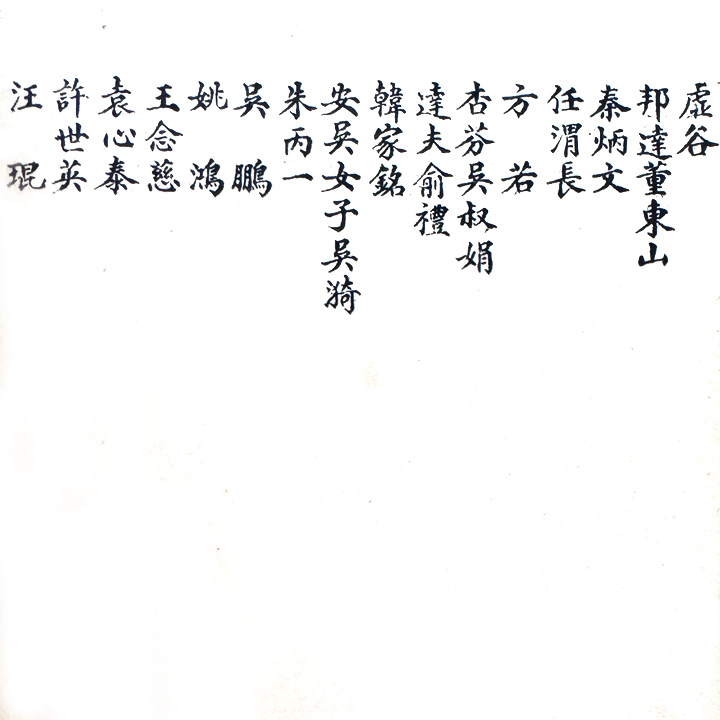 虛谷
邦達董東山
秦炳文
任渭長
方若
杏芬吳叔娟
達夫俞禮
韓家銘
安吳女子吳漪
朱丙一
吳鵬
姚鴻
王念慈
袁心泰
許世英
汪琨